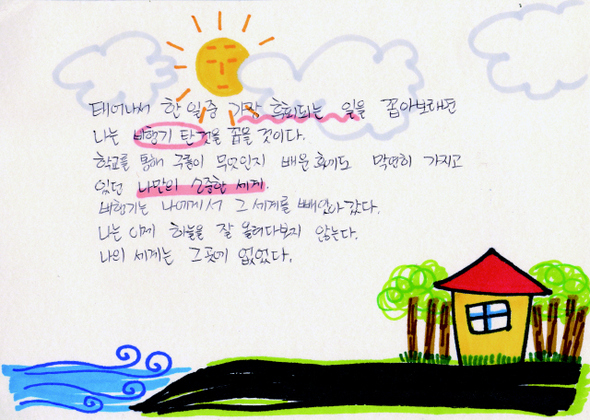 태어나서 한 일 중 가장 후회되는 일을 꼽아보라면
나는 비행기 탄 것을 꼽을 것이다.
학교를 통해 구름이 무엇인지 배운 후에도 막연히 가지고
있던 나만의 소중한 세계.
비행기는 나에게서 그 세계를 빼앗아 갔다.
나는 이제 하늘을 잘 올려다보지 않는다.
나의 세계는 그곳에 없었다.